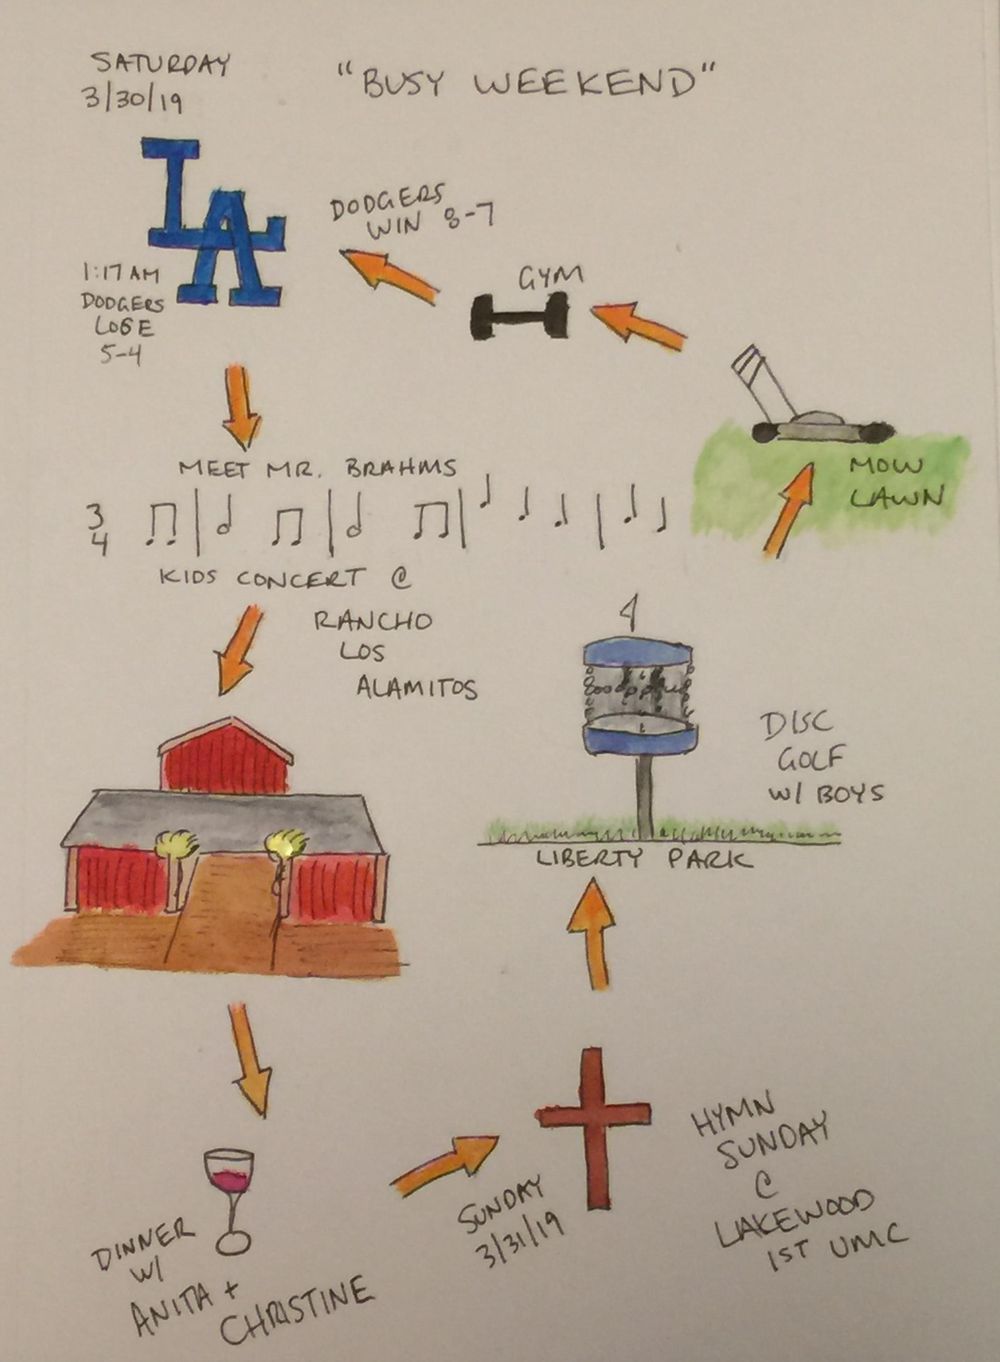 SATURDAY
3/30/19
"BUSY WEEKEND"
LA
1:17 AM
DODGERS
LOSE
5-4
DODGERS
WIN 8-7
GYM
MOW
LAWN
MEET MR. BRAHMS
3
4
KIDS CONCERT @
RANCHO
LOS
ALAMITOS
DISC
GOLF
W/ BOYS
LIBERTY PARK
DINNER
W/
ANITA +
CHRISTINE
SUNDAY
3/31/19
HYMN
SUNDAY
@
LAKEWOOD
1ST UMC